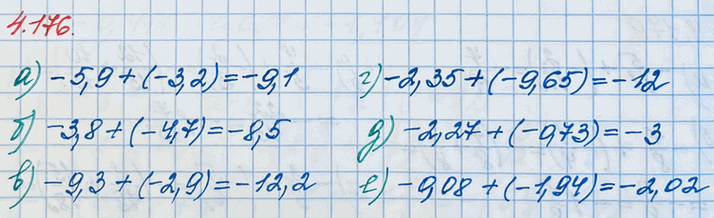 4.176.
а) -5,9 + (-3,2) = -9,1
б) -3,8 + (-4,7) = -8,5
в) -9,3 + (-2,9) = -12,2
г) -2,35 + (-9,65) = -12
д) -2,27 + (-0,73) = -3
е) -0,08 + (-1,94) = -2,02